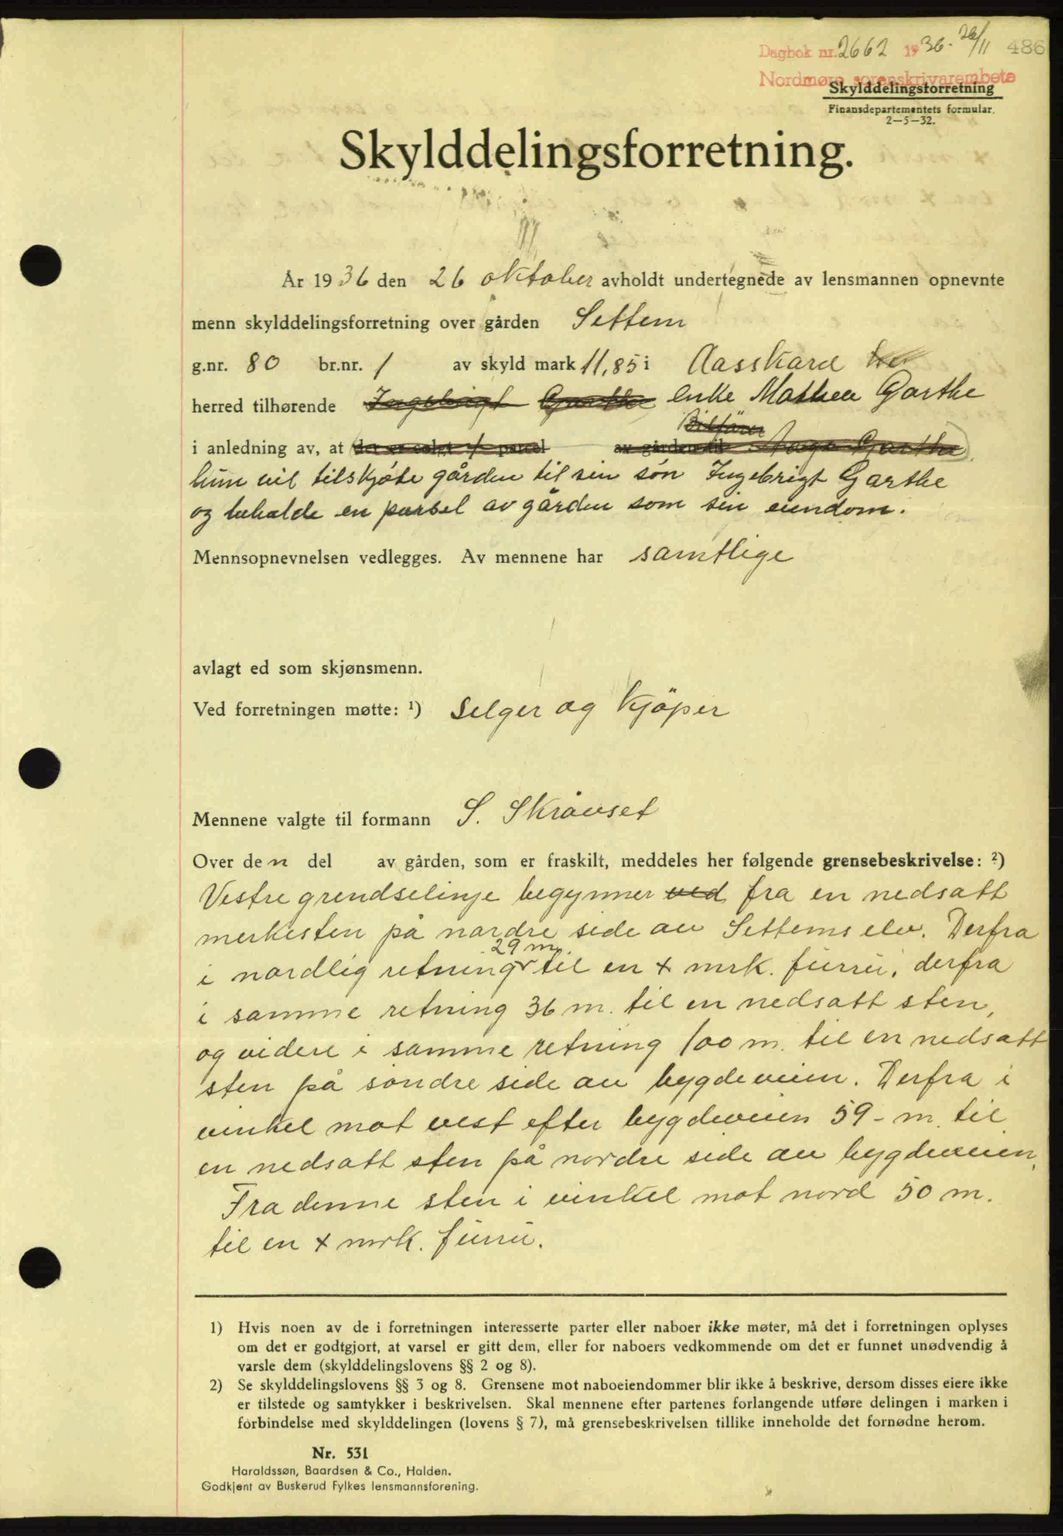 Dagbok nr. 2662 1936 - 26/11 486
Nordmøre sorenskrivarembete
Skylddelingsforretning
Finansdepartementets formular.
2—5—32.
Skylddelingsforretning.
År 1936 den 26 oktober avholdt undertegnede av lensmannen opnevnte
menn skylddelingsforretning over gården Settem
g.nr. 80 br.nr. 1 av skyld mark 11,85 i Aasskard
herred tilhørende Ingebrigt Garthe enke Mathea Garthe
Bilfører
i anledning av, at det er solgt 1 parcel av gården til Aage Garthe
hun vil tilskjøte gården til sin søn Ingebrigt Garthe
og behalde en parsel av gården som sin eiendom.
Mennsopnevnelsen vedlegges. Av mennene har samtlige
avlagt ed som skjønsmenn.
Ved forretningen møtte: ¹) Selger og Kjöper
Mennene valgte til formann S. Skråvset
Over den del av gården, som er fraskilt, meddeles her følgende grensebeskrivelse: ²)
Vestre grendselinje begynner ved fra en nedsatt
merkesten på nordre side av Settems elv. Derfra
29 m.
i nordlig retning til en + mrk. furru, derfra
i samme retning 36 m. til en nedsatt sten,
og videre i samme retning 100 m. til en nedsatt
sten på søndre side av bygdeveien. Derfra i
vinkel mot vest efter bygdeveien 59 - m. til
en nedsatt sten på nordre side av bygdeveien.
Fra denne sten i vinkel mot nord 50 m.
til en + mrk. furru.
1) Hvis noen av de i forretningen interesserte parter eller naboer ikke møter, må det i forretningen oplyses
om det er godtgjort, at varsel er gitt dem, eller for naboers vedkommende om det er funnet unødvendig å
varsle dem (skylddelingslovens §§ 2 og 8).
2) Se skylddelingslovens §§ 3 og 8. Grensene mot naboeiendommer blir ikke å beskrive, dersom disses eiere ikke
er tilstede og samtykker i beskrivelsen. Skal mennene efter partenes forlangende utføre delingen i marken i
forbindelse med skylddelingen (lovens § 7), må grensebeskrivelsen tillike inneholde det fornødne herom.
Nr. 531
Haraldssøn, Baardsen & Co., Halden.
Godkjent av Buskerud Fylkes lensmannsforening.